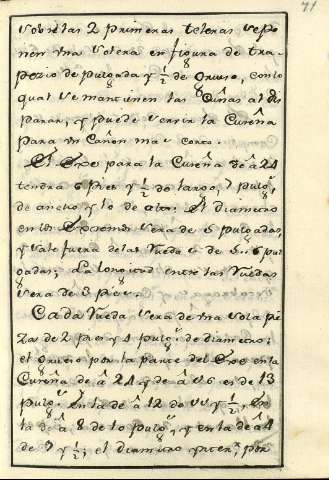 71
sobre las 2 primeras teleras se po-
nen una solera en figura de tra-
pezio de pulgada y ½ de grueso, con lo
qual se mantienen las Cuñas al di
parar, y puede servir la Cureña
para un Cañon mas corto.
El Exe para la Cureña de â 24
tendrá 6 pies y ½ de largo, 7 pulgˢ,
de ancho y 10 de alto. El diametro
en los Extremos sera de 5 pulgadas,
y sale fuera de las Ruedas de 5. o 6 pul
gadas; La longitud entre las Ruedas
sera de 3 pies.
Cada Rueda sera de una sola pie
za de 2 pies y 4 pulgˢ. de diametro:
el grueso por la parte del Exe en la
Cureña de â 24 y de â 16 es de 13
pulgˢ. En la de â 12 de 11 y ½, En
la de â 8 de 10 pulgˢ, y en la de â 4
de 9 y ½; el diametro por